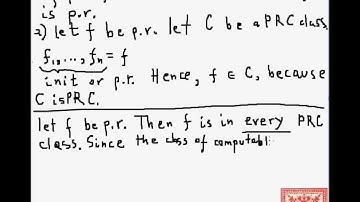 is p.r.
2) let f be p.r. let C be a PRC class.
f₁,..., fₙ = f
init or p.r. Hence, f ∈ C, because
C is PRC.
let f be p.r. Then f is in every PRC
class. Since the class of computabl